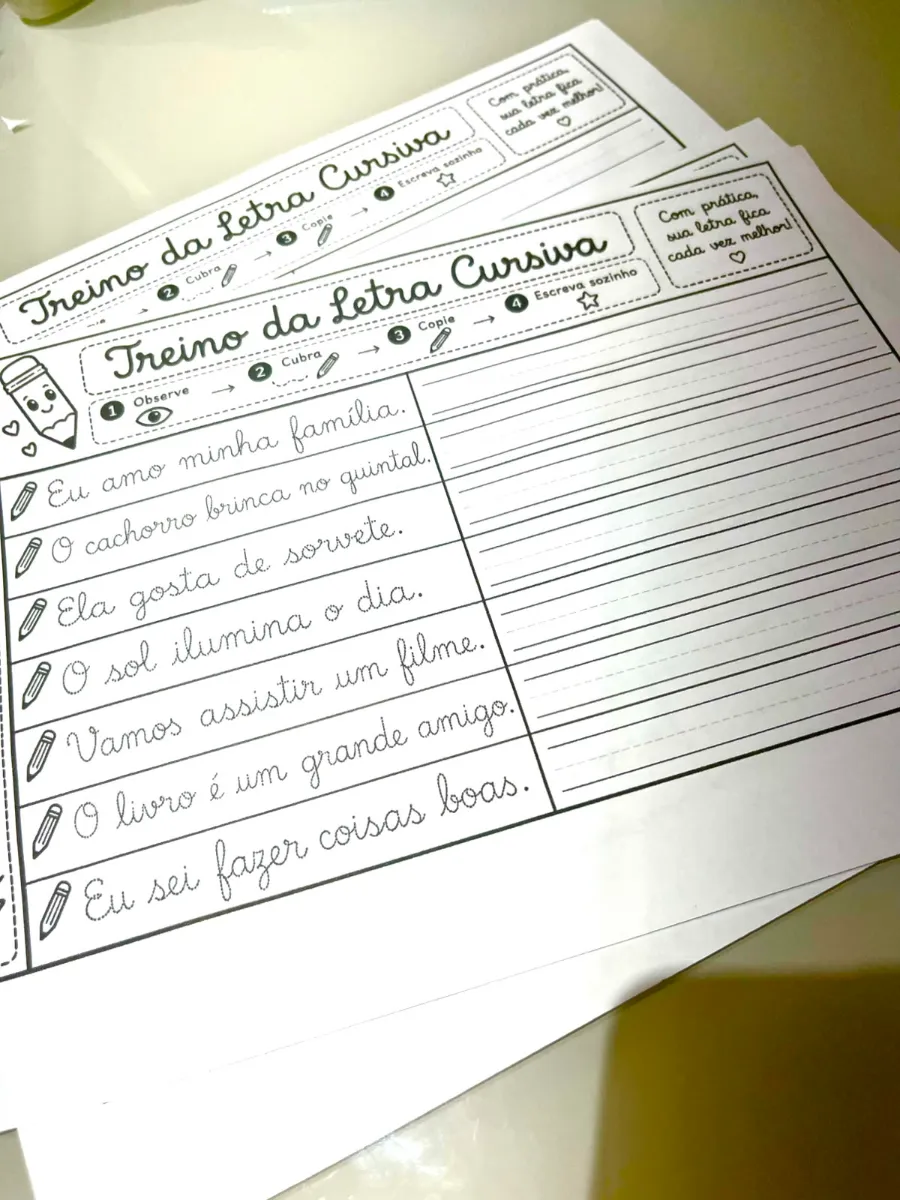 Treino da Letra Cursiva
Com prática,
sua letra fica
cada vez melhor!
2 Cubra
3 Copie
4 Escreva sozinho
Treino da Letra Cursiva
Com prática,
sua letra fica
cada vez melhor!
1 Observe
2 Cubra
3 Copie
4 Escreva sozinho
Eu amo minha família.
O cachorro brinca no quintal.
Ela gosta de sorvete.
O sol ilumina o dia.
Vamos assistir um filme.
O livro é um grande amigo.
Eu sei fazer coisas boas.